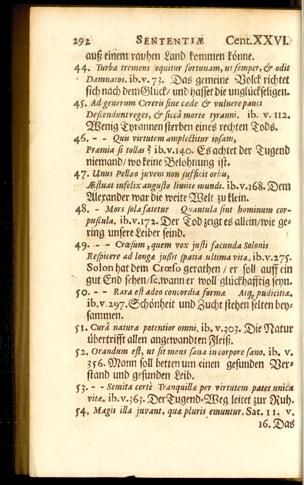 292 SENTENTIÆ Cent. XXVI.
auß einem rauhen Land kommen könne.
44. Turba tremens sequitur fortunam, ut semper, & odit
Damnatos. ib. v. 73. Das gemeine Volck richtet
sich nach dem Glück / und hasset die unglückseligen.
45. Ad generum Cereris sine cæde & vulnere pauci
Descendunt reges, & siccâ morte tyranni. ib. v. 112.
Wenig Tyrannen sterben eines rechten Tods.
46. - - Quis virtutem amplectitur ipsam,
Præmia si tollas? ib. v. 140. Es achtet der Tugend
niemand / wo keine Belohnung ist.
47. Unus Pellæo juveni non sufficit orbis,
Æstuat infelix angusto limite mundi. ib. v. 168. Dem
Alexander war die weite Welt zu klein.
48. - Mors sola fatetur Quantula sint hominum cor-
puscula. ib. v. 172. Der Tod zeiget es allein / wie ge-
ring unsere Leiber seind.
49. - - Crœsum, quem vox justi facunda Solonis
Respicere ad longæ jussit spatia ultima vitæ. ib. v. 275.
Solon hat dem Crœso gerathen / er soll auff ein
gut End sehen / sc. wann er woll glückhafftig seyn.
50. - - Rara est adeo concordia formæ Atq, pudicitiæ.
ib. v. 297. Schönheit und Zucht stehen selten bey-
sammen.
51. Curâ naturâ potentior omni. ib. v. 303. Die Natur
übertrifft allen angewandten Fleiß.
52. Orandum est, ut sit mens sana in corpore sano. ib. v.
356. Mann soll betten um einen gesunden Ver-
stand und gesunden Leib.
53. - - Semita certè Tranquillæ per virtutem patet unica
vitæ. ib. v. 363. Der Tugend-Weg leitet zur Ruh.
54. Magis illa juvant, quæ pluris emuntur. Sat. 11. v.
16. Das